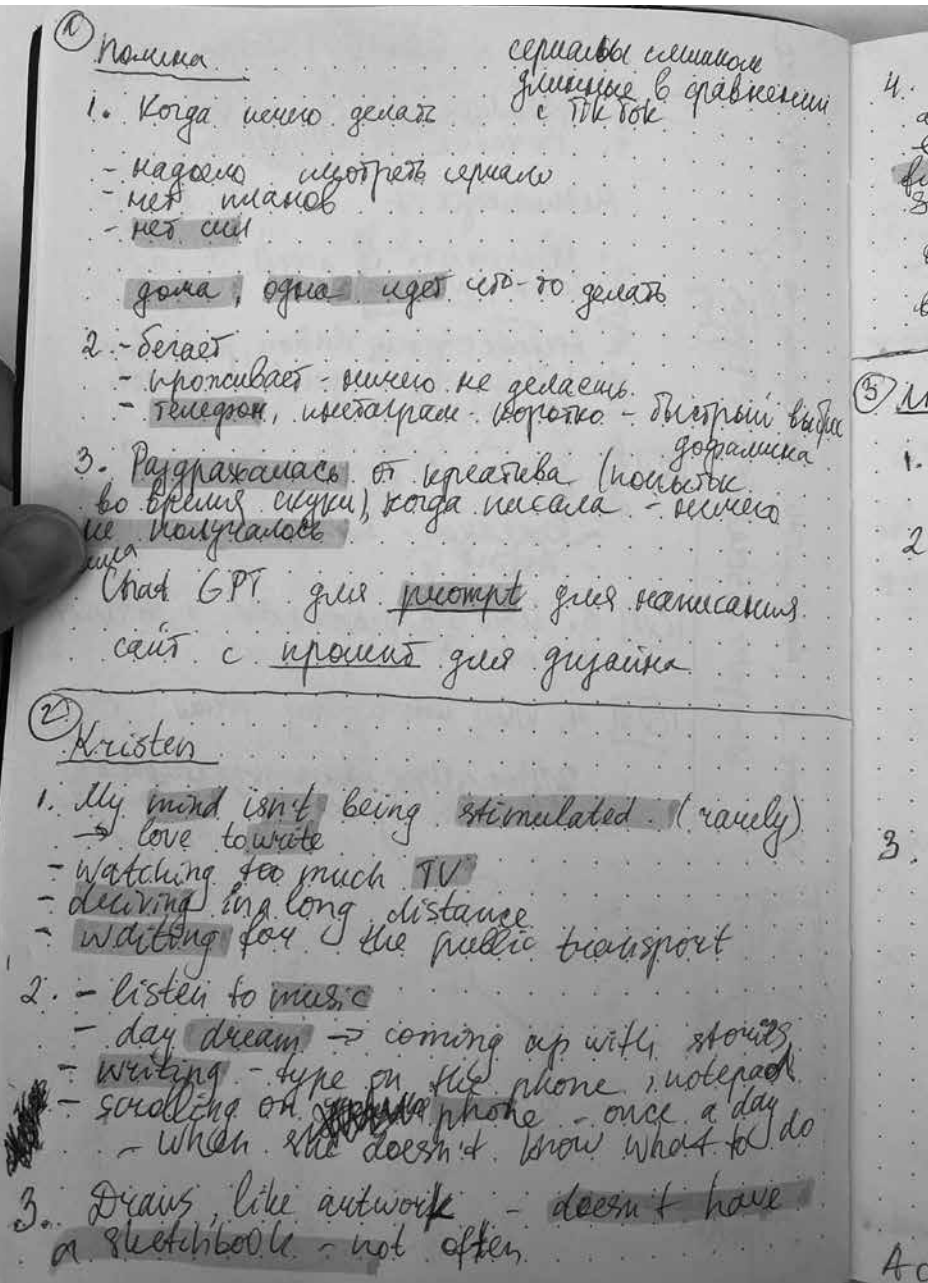 ① Полина
сериалы слишком
длинные в сравнении
с Tik Tok
1. Когда нечего делать
- надоело смотреть сериалы
- нет планов
- нет сил
дома, одна идет что-то делать
2. - бегает
- проживает - ничего не делаешь.
- телефон, инстаграм - коротко - быстрый выброс
дофамина
3. Раздражалась от креатива (попыток
во время скуки), когда писала - ничего
не получалось
Chat GPT для prompt для написания
сайт с промпт для дизайна
② Kristen
1. My mind isn't being stimulated. (rarely)
→ love to write
- watching too much TV
- driving in a long distance
- waiting for the public transport
2. - listen to music
- day dream → coming up with stories
- writing - type on the phone, notepad
- scrolling on phone - once a day
- when she doesn't know what to do
3. Draws, like artwork - doesn't have
a sketchbook - not often
4.
③
1.
2
3.